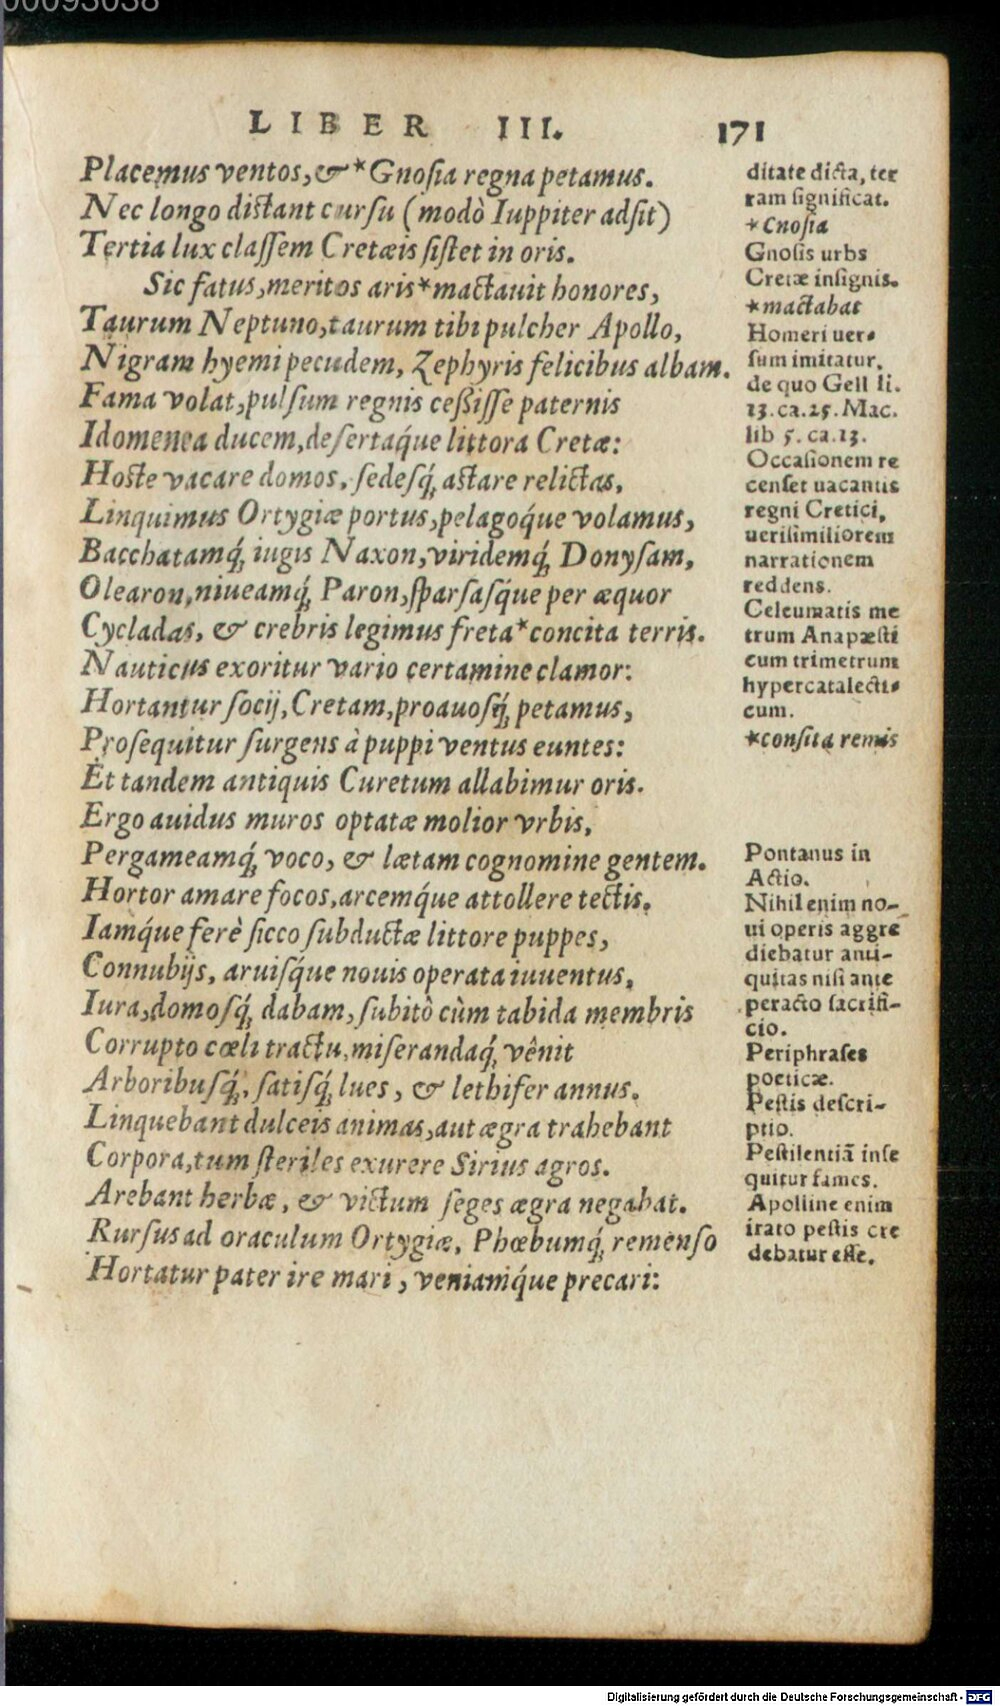 00093038
LIBER III. 171
Placemus ventos, & *Gnoſia regna petamus.
Nec longo diſtant curſu (modò Iuppiter adſit)
Tertia lux claſſem Cretæis ſiſtet in oris.
Sic fatus, meritos aris *mactauit honores,
Taurum Neptuno, taurum tibi pulcher Apollo,
Nigram hyemi pecudem, Zephyris felicibus albam.
Fama volat, pulſum regnis ceßiſſe paternis
Idomenea ducem, deſertaq́ue littora Cretæ:
Hoſte vacare domos, ſedeſq́; aſtare relictas,
Linquimus Ortygiæ portus, pelagoq́ue volamus,
Bacchatamq́; iugis Naxon, viridemq́; Donyſam,
Olearon, niueamq́; Paron, ſparſaſq́ue per æquor
Cycladas, & crebris legimus freta *concita terris.
Nauticus exoritur vario certamine clamor:
Hortantur ſocij, Cretam, proauoſq́; petamus,
Proſequitur ſurgens à puppi ventus euntes:
Et tandem antiquis Curetum allabimur oris.
Ergo auidus muros optatæ molior vrbis,
Pergameamq́; voco, & lætam cognomine gentem.
Hortor amare focos, arcemq́ue attollere tectis.
Iamq́ue ferè ſicco ſubductæ littore puppes,
Connubijs, aruiſq́ue nouis operata iuuentus,
Iura, domoſq́; dabam, ſubitò cùm tabida membris
Corrupto cœli tractu, miſerandaq́; vênit
Arboribuſq́;, ſatiſq́; lues, & lethifer annus.
Linquebant dulceis animas, aut ægra trahebant
Corpora, tum ſteriles exurere Sirius agros.
Arebant herbæ, & victum ſeges ægra negabat.
Rurſus ad oraculum Ortygiæ, Phœbumq́; remenſo
Hortatur pater ire mari, veniamq́ue precari:
ditate dicta, ter
ram ſignificat.
*Cnoſia
Gnoſis urbs
Cretæ inſignis.
*mactabat
Homeri uer-
ſum imitatur,
de quo Gell li.
13. ca. 25. Mac.
lib 5. ca. 13.
Occaſionem re
cenſet uacantis
regni Cretici,
ueriſimiliorem
narrationem
reddens.
Celeumatis me
trum Anapæſti
cum trimetrum
hypercatalecti-
cum.
*conſita remis
Pontanus in
Actio.
Nihil enim no-
ui operis aggre
diebatur anti-
quitas niſi ante
peracto ſacrifi-
cio.
Periphraſes
poeticæ.
Peſtis deſcri-
ptio.
Peſtilentiã inſe
quitur fames.
Apolline enim
irato peſtis cre
debatur eſſe.
Digitalisierung gefördert durch die Deutsche Forschungsgemeinschaft - DFG